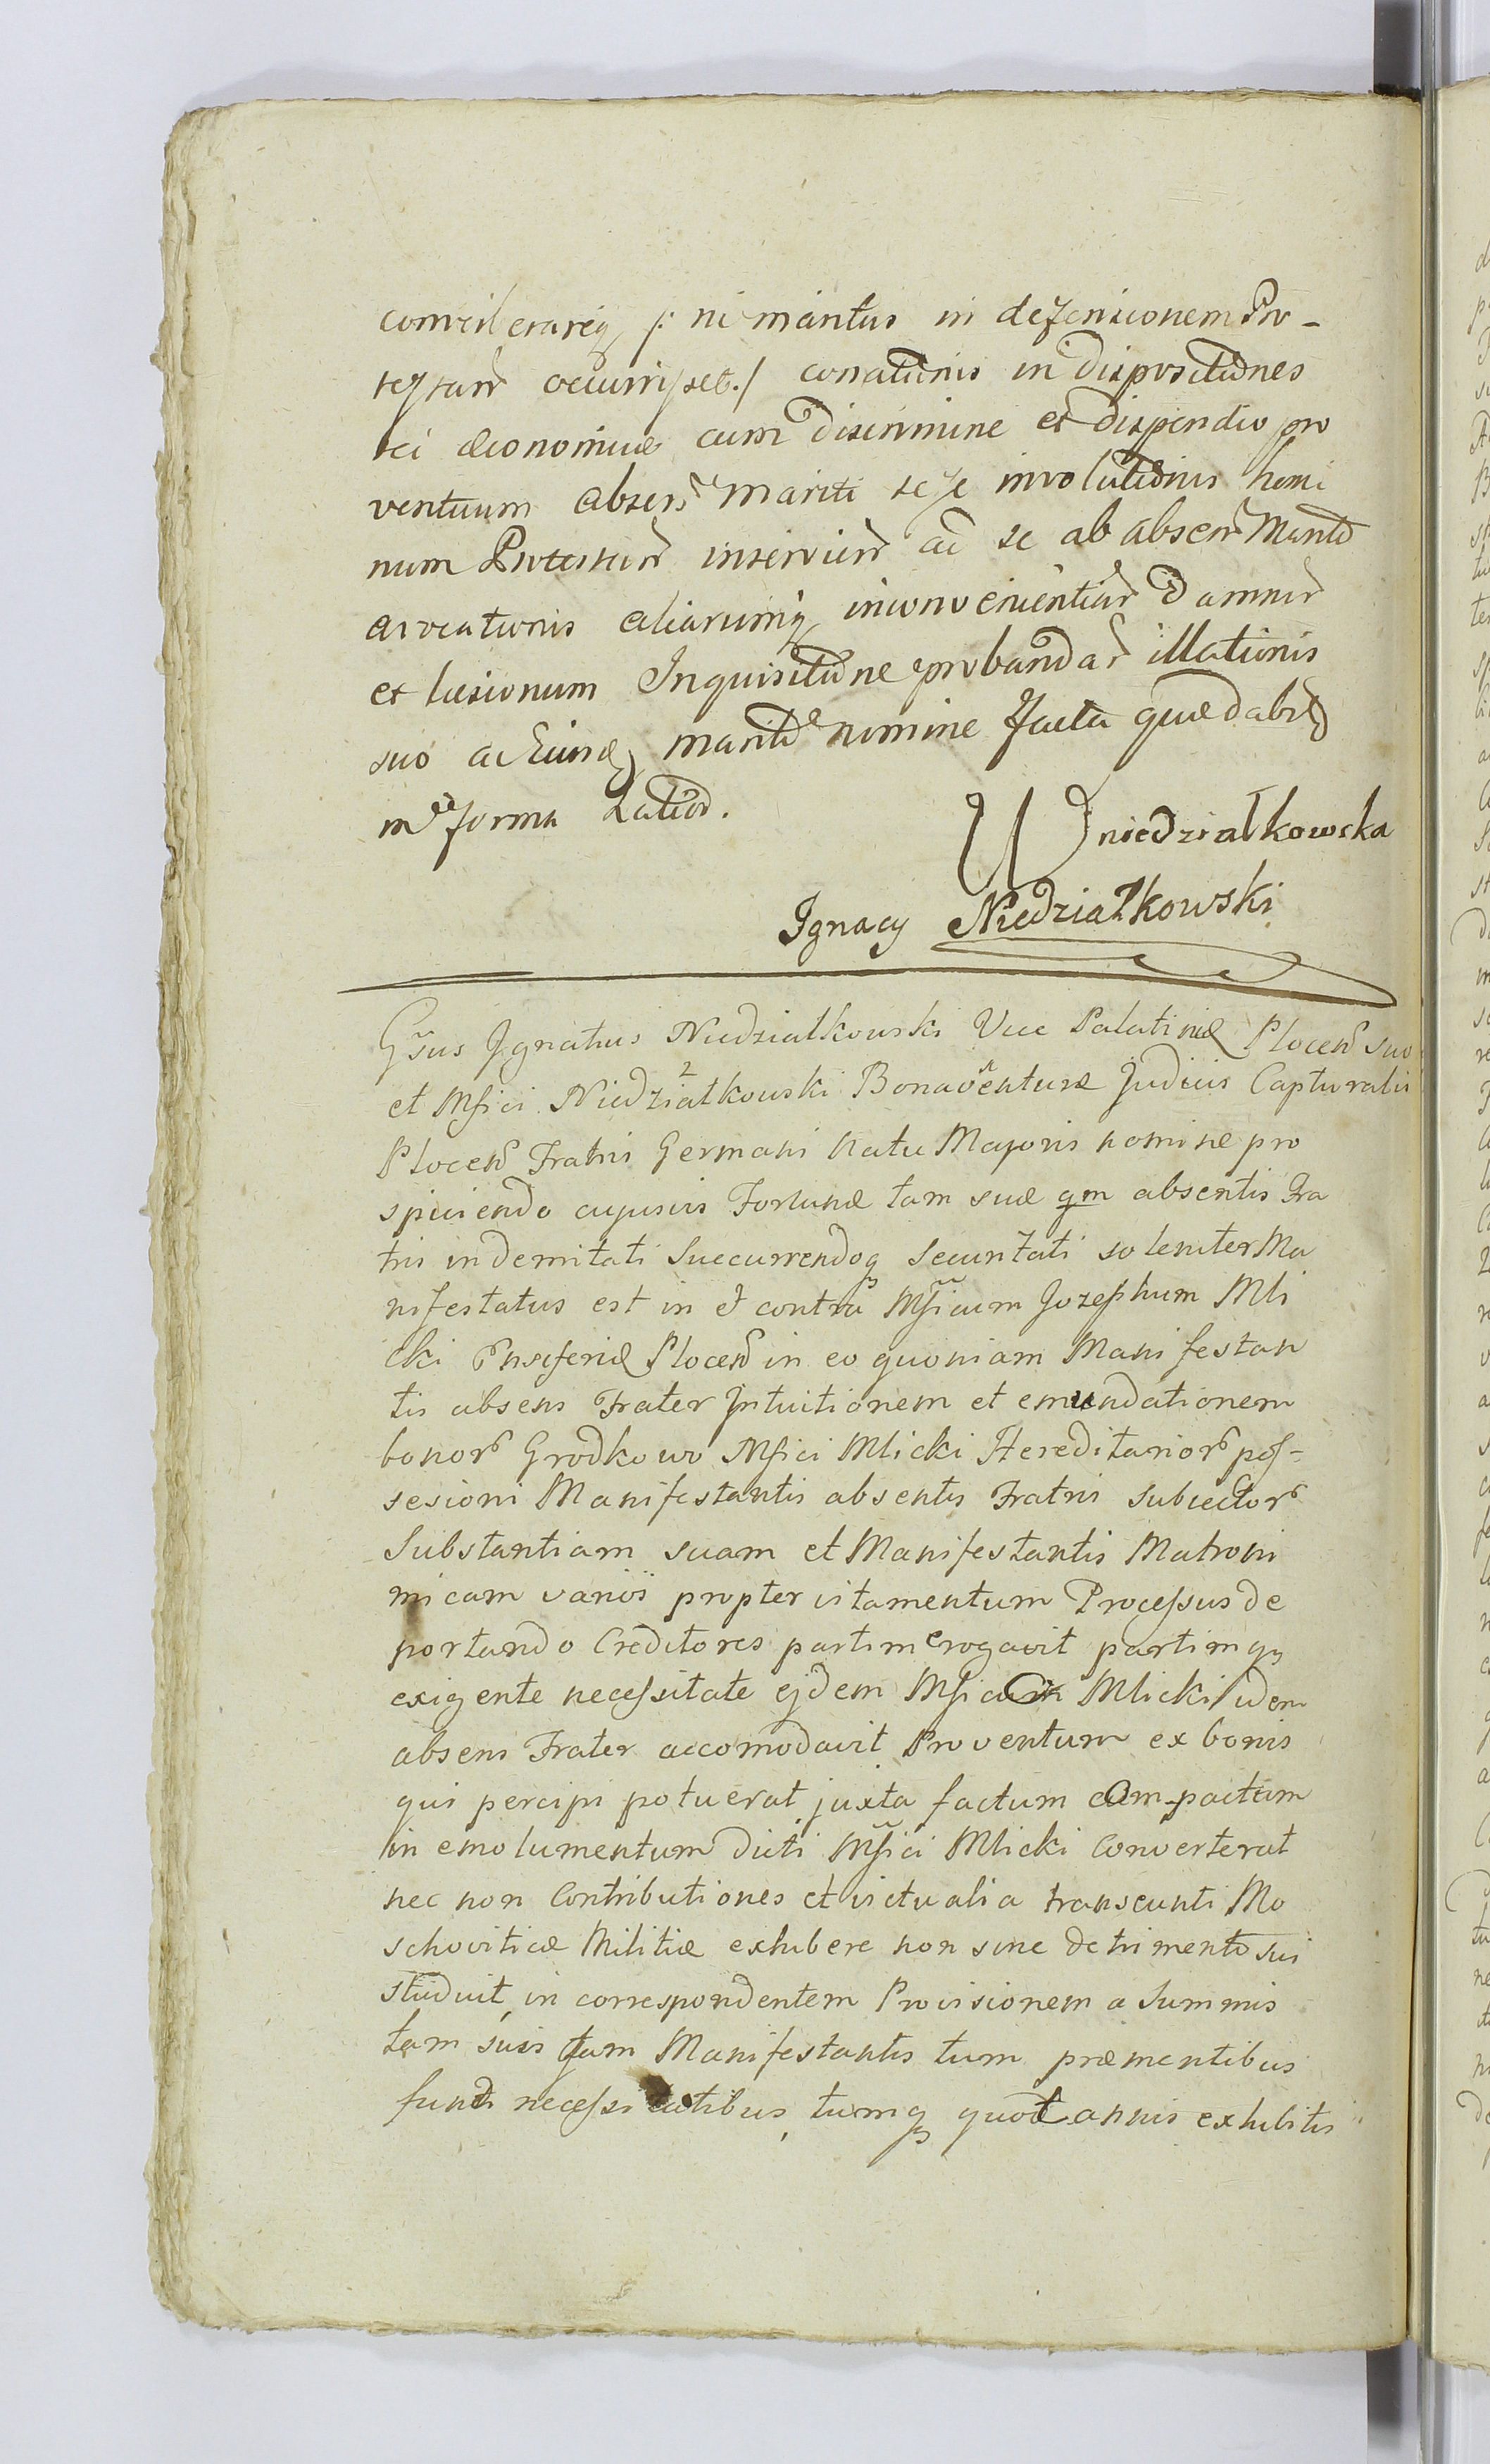 considerareq /: ni maritus in defensionem Pro-
testan occurrisset :/ conationis in dispositiones
rei œconomiæ cum discrimine et dispendio pro
ventuum absen Mariti sese involutionis homi
num Protestan inservien ac se ab absen Marito
avocationis aliarumq inconvenientiar damnor
et læsionum Inquisitione probandar illationis
suo ac Eiusd mariti nomine facta quæ dabit
in forma Latiori.
U niedziałkowska
Ignacy Niedziałkowski
Gsus Ignatius Niedzialkowski Vice Palatinæ Plocen suo
et Mfici Niedzialkowski Bonaventuræ Judicis Capturalis
Plocen Fratris Germani Natu Majoris nomine pro
spiciendo cujusvis Fortunæ tam suæ qm absentis Fra
tris indemnitati succurrendoq Securitati soleniter Ma
nifestatus est in et contra Mficum Jozephum Mli
cki Ensiferid Plocen in eo quoniam Manifestan
tis absens Frater Intuitionem et emundationem
bonor Grodkowo Mfici Mlicki Hereditarior pos-
sesioni Manifestantis absentis Fratris subiector
Substantiam suam et Manifestantis Matroni
micam varios propter vitamentum Processus de
portando Creditores partim erogavit partimq
exigente necessitate ejdem Mficum Mlicki idem
absens Frater accomodavit Proventum ex bonis
qui percipi potuerat juxta factum compactum
in emolumentum dicti Mfici Mlicki Converterat
nec non Contributiones et victualia transeunti Mo
schoviticæ Militiæ exhibere non sine detrimento sui
studuit, in correspondentem Provisionem a Summis
tam suis qam Manifestantis tum præmentibus
fundi necessitatibus, tumq quot annis exhibitis